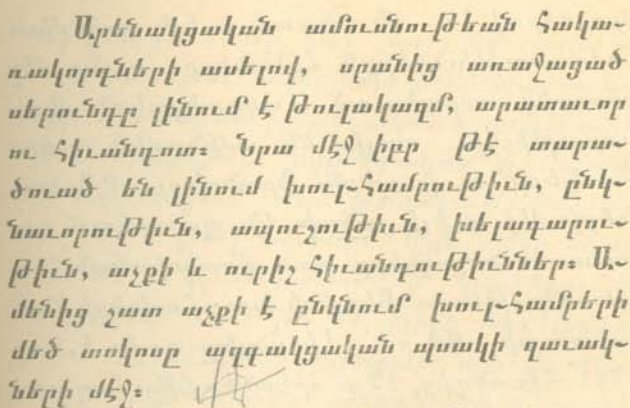 Արենակցական ամուսնութեան հակա-
ռակորդների ասելով, սրանից առաջացած
սերունդը լինում է թուլակազմ, արատաւոր
ու հիւանդոտ։ Նրա մէջ իբր թէ տարա-
ծուած են լինում խուլ-համրութիւն, ընկ-
նաւորութիւն, ապուշութիւն, խելագարու-
թիւն, աչքի և ուրիշ հիւանդութիւններ։ Ա-
մենից շատ աչքի է ընկնում խուլ-համրերի
մեծ տոկոսը ազգակցական պսակի զաւակ-
ների մէջ։